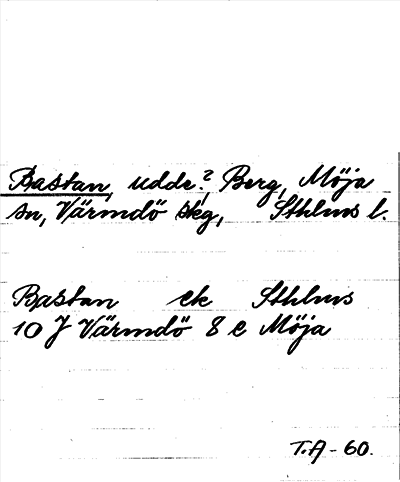 Bastan, udde?, Berg, Möja
sn, Värmdö skg, Sthlms l.
Bastan ek Sthlms
10 J Värmdö 8 e Möja
T.A - 60.